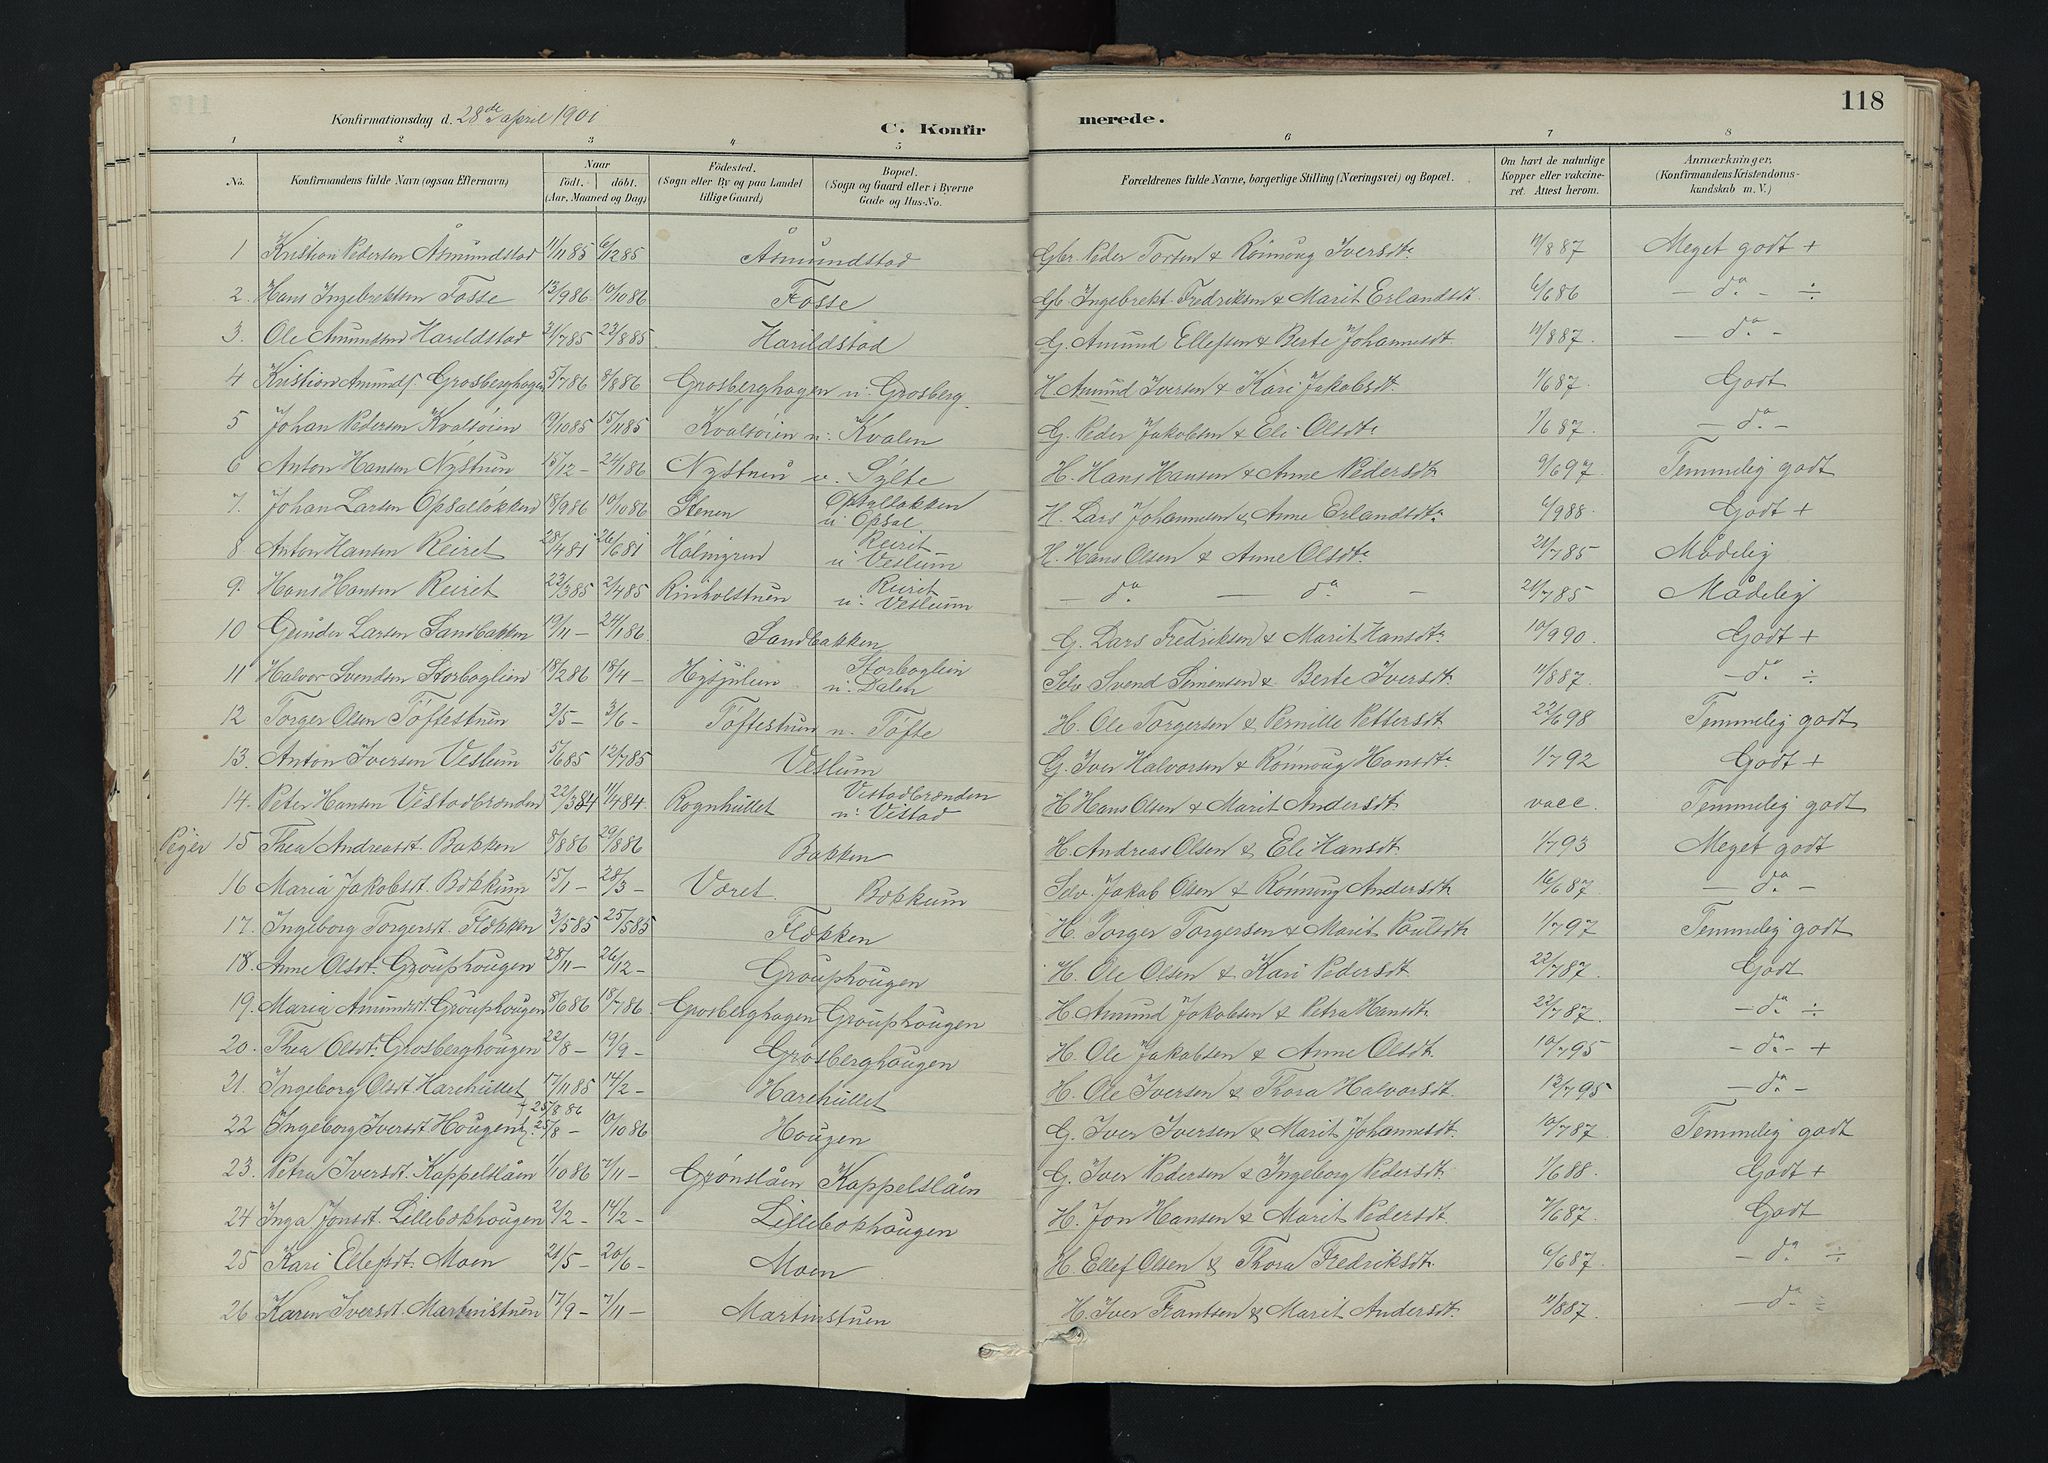 118
Konfirmationsdag d. 28de april 1901
C. Konfirmerede.
1 2 3 4 5 6 7 8
No. Konfirmandens fulde Navn (ogsaa Efternavn) Naar født. døbt. (Aar, Maaned og Dag) Fødested. (Sogn eller By og paa Landet tillige Gaard) Bopæl. (Sogn og Gaard eller i Byerne Gade og Hus-No. Forældrenes fulde Navne, borgerlige Stilling (Næringsvei) og Bopæl. Om havt de naturlige Kopper eller vakcineret. Attest herom. Anmærkninger, (Konfirmandens Kristendomskundskab m. V.)
1 Kristian Pedersen Åsmundstad 11/11 85 6/12 85 Åsmundstad Gbr. Peder Torsen & Rönnoug Iversdt. 11/8 87 Meget godt +
2 Hans Ingebrektsen Fosse 13/9 86 10/10 86 Fosse Gb. Ingebrekt Fredriksen & Marit Erlandsdt. 6/6 86 — do - ÷
3. Ole Amundsen Harildstad 21/7 85 23/8 85 Harildstad G. Amund Ellefsen & Berte Johannesdt 11/8 87. — do -
4 Kristian Amunds. Grosberghagen 5/7 86 8/8 86 Grosberghagen u. Grosberg. H Amund Iversen & Kari Jakobsdt. 1/6 87. Godt
5 Johan Pedersen Kvalsöien 19/10 85 15/11 85 Kvalsöien u. Kvalen G. Peder Jakobsen & Eli Olsdt. 1/6 87. — do -
6 Anton Hansen Nystuen 15/12 - 24/1 86 Nystuen u. Sylte H. Hans Hansen & Anne Pedersdt. 9/6 97. Temmelig godt
7. Johan Larsen Opsalløkken 18/9 86 10/10 86 Stenen Opsalløkken u Opsal H. Lars Johannesen & Anne Erlandsdt. 4/9 88. Godt +
8 Anton Hansen Reiret 28/4 81 26/6 81 Holmgrund Reiret u Veslum H. Hans Olsen & Anne Olsdt. 21/7 85 Mådelig
9. Hans Hansen Reiret 23/3 85 2/4 85 Rinholstuen Reiret u. Veslum — do — do - 21/7 85 Mådelig
10 Gunder Larsen Sandbakken 19/11 - 24/1 86. Sandbakken G. Lars Fredriksen & Marit Hansdt. 10/9 90. Godt +
11 Halvor Svendsen Storboglien 18/2 86 18/4 - Hysjulien Storboglien u. Dalen Selv Svend Simensen & Berte Iversdt. 11/8 87. — do ÷
12 Torger Olsen Töftestuen 2/5 - 3/6 - Töftestuen u. Töfte H. Ole Torgersen & Pernille Pettersdt 22/6 98 Temmelig godt
13. Anton Iversen Veslum 5/6 85 12/7 85 Veslum G. Iver Halvorsen & Rönnoug Hansdt. 1/7 92 Godt +
14. Peter Hansen Vistadbrænden 22/3 84 11/4 84. Rognhullet Vistadbrænden u. Vistad H Hans Olsen & Marit Andersdt. vacc. Temmelig godt
Piger 15 Thea Andreasdt. Bakken 8/8 86 29/8 86 Bakken H. Andreas Olsen & Eli Hansdt. 1/7 93 Meget godt
16 Maria Jakobsdt. Bækkum 15/1 - 28/3 - Voret Bækkum Selv. Jakob Olsen & Rönnoug Andersdt. 16/6 87. — do -
17. Ingeborg Torgersdt. Flækken 3/5 85 25/5 85 Flækken H. Torger Torgersen & Marit Poulsdt. 1/7 97 Temmelig godt
18. Anne Olsdt. Grouphougen 28/11 - 26/12 - Grouphougen H. Ole Olsen & Kari Pedersdt 22/7 87. Godt
19. Maria Amundsdt. Grouphougen 8/6 86 18/7 86 Grosberghagen Grouphougen H. Amund Jakobsen & Petra Hansdt. 22/7 87. — do ÷
20. Thea Olsdt. Grosberghougen 22/8 - 19/9 - Grosberghougen H. Ole Jakobsen & Anne Olsdt. 10/7 95 — do - +
21. Ingeborg Olsdt. Harehullet 17/11 85 14/2 - Harehullet H. Ole Iversen & Thora Halvorsdt. 12/7 95 — do -
+ 25/8 86
22 Ingeborg Iversdt Hougen 25/8 - 10/10 86 Hougen G. Iver Iversen & Marit Johannesdt. 10/7 87. Temmelig godt
23. Petra Iversdt. Kappelslåen 1/10 86 7/11 - Grønslåen Kappelslåen G. Iver Pedersen & Ingeborg Pedersdt. 1/6 88. Godt +
24 Inga Jonsdt. Lillebækhougen 2/2 - 14/2 - Lillebækhougen H. Jon Hansen & Marit Pedersdt. 7/6 87. Godt
25 Kari Ellefsdt. Moen 21/5 - 20/6 - Moen H. Ellef Olsen & Thora Fredriksdt. 6/6 87. — do ÷
26 Karen Iversdt. Martinstuen 17/9 - 7/11 - Martinstuen H. Iver Frantsen & Marit Andersdt. 11/8 87. — do ÷